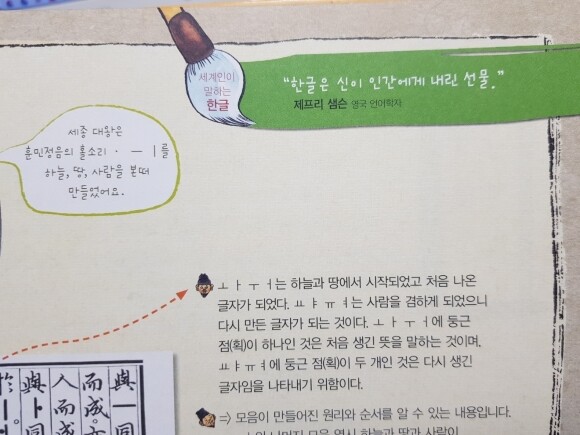 세계인이
말하는
한글
“한글은 신이 인간에게 내린 선물.”
제프리 샘슨 영국 언어학자
세종 대왕은
훈민정음의 홀소리 · ㅡ ㅣ를
하늘, 땅, 사람을 본떠
만들었어요.
ㅗ ㅏ ㅜ ㅓ는 하늘과 땅에서 시작되었고 처음 나온
글자가 되었다. ㅛ ㅑ ㅠ ㅕ는 사람을 겸하게 되었으니
다시 만든 글자가 되는 것이다. ㅗ ㅏ ㅜ ㅓ에 둥근
점(획)이 하나인 것은 처음 생긴 뜻을 말하는 것이며,
ㅛ ㅑ ㅠ ㅕ에 둥근 점(획)이 두 개인 것은 다시 생긴
글자임을 나타내기 위함이다.
⇒ 모음이 만들어진 원리와 순서를 알 수 있는 내용입니다.
나머지 모음 역시 하늘과 땅과 사람이
與ㅡ同
而成
人而成
與ㅏ同
於